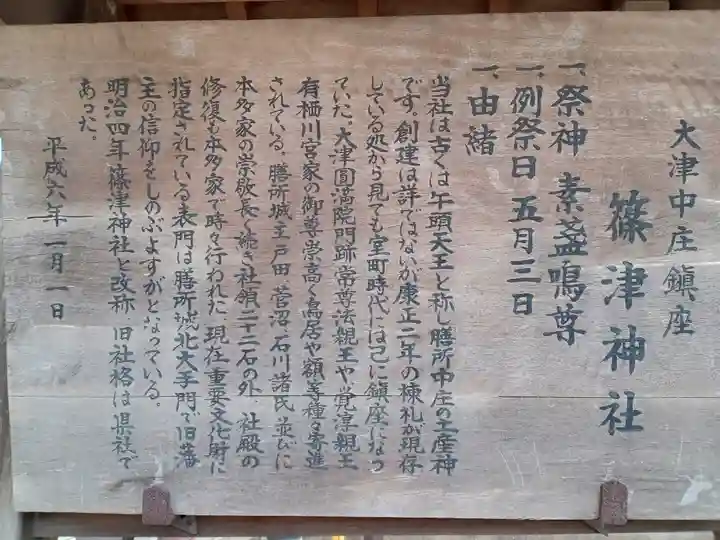 大津中庄鎮座
篠津神社
一、祭神 素盞鳴尊
一、例祭日 五月三日
一、由緒
当社は古くは午頭天王と称し膳所中庄の土産神
です。創建は詳ではないが康正二年の棟札が現存
している処から見ても室町時代には己に鎮座になっ
ていた。大津圓満院門跡常尊法親王や覚淳親王
有栖川宮家の御尊崇高く鳥居や額等種々寄進
されている。膳所城主戸田、菅沼、石川諸氏並びに
本多家の崇敬長く続き社領二十二石の外、社殿の
修復も本多家で時々行われた。現在重要文化財に
指定されている表門は膳所城北大手門で旧藩
主の信仰をしのぶよすがとなっている。
明治四年篠津神社と改称、旧社格は県社で
あった。
平成六年一月一日